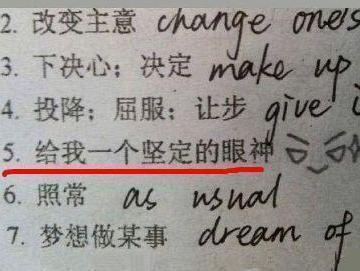 2. 改变主意 change one's
3. 下决心；决定 make up
4. 投降；屈服；让步 give i
5. 给我一个坚定的眼神
6. 照常 as usual
7. 梦想做某事 dream of